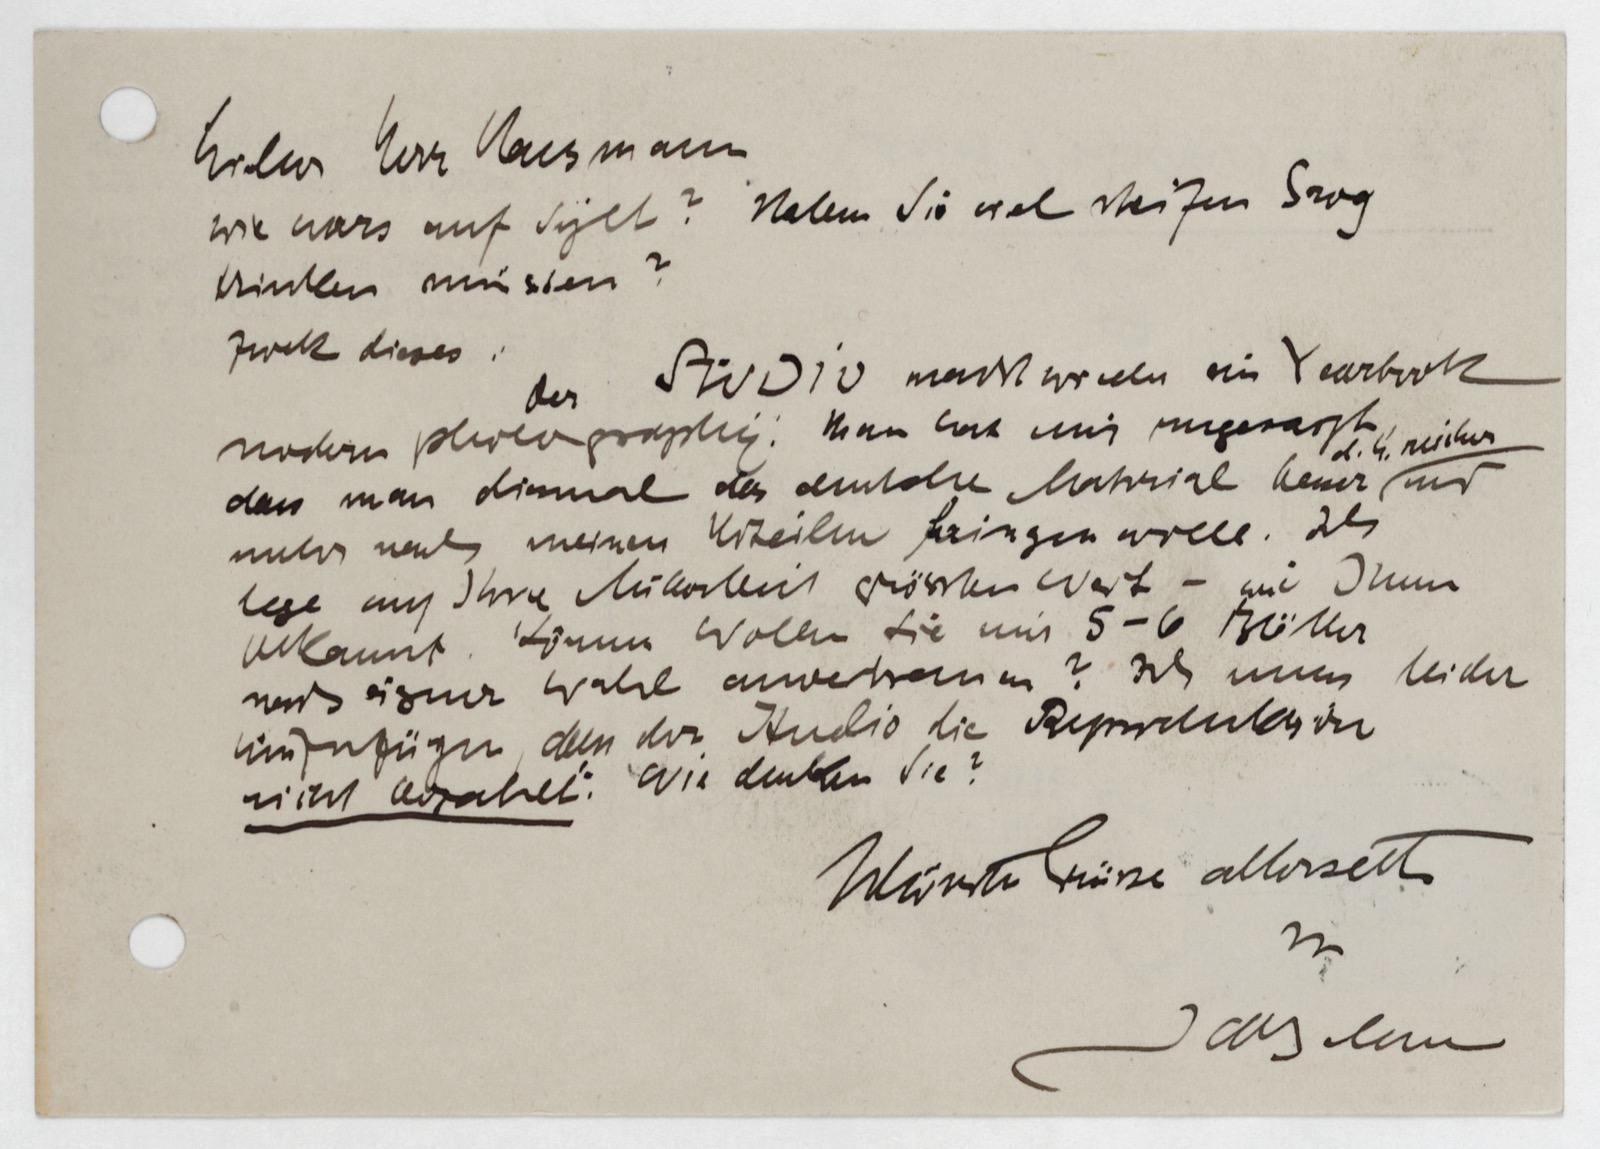 Lieber Herr Hausmann
wie wars auf Sylt? Haben Sie viel steifen Grog
trinken müssen?
Zweck dieses:
der STUDIO macht wieder ein Yearbook
modern photography. Man hat mir zugesagt,
dass man diesmal das deutsche Material besser (und
d. h. reicher
mehr nach meinen Urteilen bringen wolle. Ich
lege auf Ihre Mitarbeit grössten Wert – wie Ihnen
bekannt. Wollen Sie mir 5–6 Blätter
nach eigner Wahl anvertrauen? Ich muss leider
hinzufügen, dass der Studio die Reproduktion
nicht bezahlt. Wie denken Sie?
Grüsse allerseits